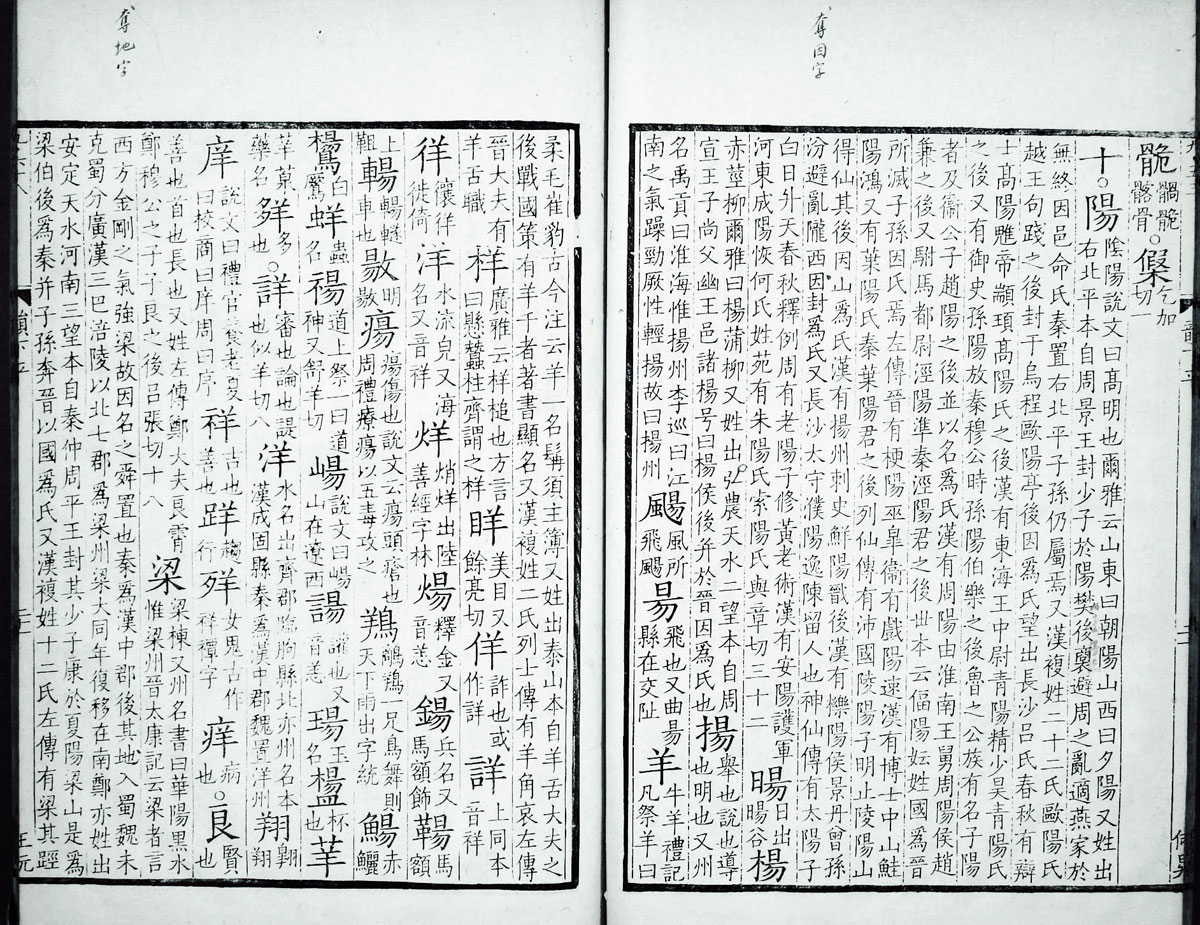 奪因字
髂骨。 乞加切一
十。陽 陰陽說文曰高明也爾雅云山東曰朝陽山西曰夕陽又姓出右北平本自周景王封少子於陽樊後裔避周之亂適燕家於
無終因邑命氏秦置右北平子孫仍屬焉又漢複姓二十二氏歐陽氏越王句踐之後封于烏程歐陽亭後因爲氏望出長沙呂氏春秋有辯
士高陽魋帝顓頊高陽氏之後漢有東海王中尉青陽精少昊青陽氏之後又有御史孫陽放秦穆公時孫陽伯樂之後魯之公族有名子陽
者及衞公子趙陽之後並以名爲氏漢有周陽由淮南王舅周陽侯趙兼之後又駙馬都尉涇陽準秦涇陽君之後世本云偪陽妘姓國爲晉
所滅子孫因氏焉左傳晉有梗陽巫皐衞有戲陽速漢有博士中山鮭陽鴻又有葉陽氏秦葉陽君之後列仙傳有沛國陵陽子明止陵陽山
得仙其後因山爲氏漢有揚州刺史鮮陽戩後漢有櫟陽侯景丹曾孫汾避亂隴西因封爲氏又長沙太守濮陽逸陳留人也神仙傳有太陽子
白日升天春秋釋例周有老陽子修黃老術漢有安陽護軍河東成陽恢何氏姓苑有朱陽氏索陽氏與章切三十二 暘 日出暘谷 楊
赤莖柳爾雅曰楊蒲柳又姓出弘農天水二望本自周宣王子尚父幽王邑諸楊号曰楊侯後并於晉因爲氏也 揚 舉也說也導也明也又州
名禹貢曰淮海惟揚州李巡曰江南之氣躁勁厥性輕揚故曰揚州 颺 風所飛颺 昜 飛也又曲昜縣在交阯 羊 牛羊禮記凡祭羊曰
奪地字
柔毛崔豹古今注云羊一名髯須主簿又姓出泰山本自羊舌大夫之後戰國策有羊千者著書顯名又漢複姓二氏列士傳有羊角哀左傳
晉大夫有羊舌職 样 廣雅云样槌也方言曰懸蠶柱齊謂之样 眻 美目又餘亮切 佯 詐也或作詳 詳 上同本音祥
徉 儴徉徙倚 洋 水流皃又海名又音祥 烊 焇烊出陸善經字林 煬 釋金又音恙 鍚 兵名又馬額飾 䩶 馬額
上靻 輰 輰䡵車也 敭 明也 瘍 瘍傷也說文云瘍頭瘡也周禮療瘍以五毒攻之 一足鳥舞則天下雨出字統 鰑 赤鱺
鸉 白鷢 蛘 蟲名 禓 道上祭一曰道神又舒羊切 崵 說文曰崵山在遼西 諹 讙也又音恙 瑒 玉名 杯也
藥名 多也。 詳 審也論也諟也似羊切八 洋 水名出齊郡臨朐縣北亦州名本漢成固縣秦爲漢中郡魏置洋州 翔 翺翔
庠 說文曰禮官養老夏曰校商曰庠周曰序 祥 吉也善也 趨行 女鬼古作祥禫字 痒 病也。 良 賢也
善也首也長也又姓左傳鄭大夫良霄鄭穆公之子子良之後呂張切十八 梁 梁棟又州名書曰華陽黑水惟梁州晉太康記云梁者言
西方金剛之氣強梁故因名之舜置也秦爲漢中郡後其地入蜀魏末克蜀分廣漢三巴涪陵以北七郡爲梁州梁大同年復移在南鄭亦姓出
安定天水河南三望本自秦仲周平王封其少子康於夏陽梁山是爲梁伯後爲秦并子孫奔晉以國爲氏又漢複姓十二氏左傳有梁其踁
王元